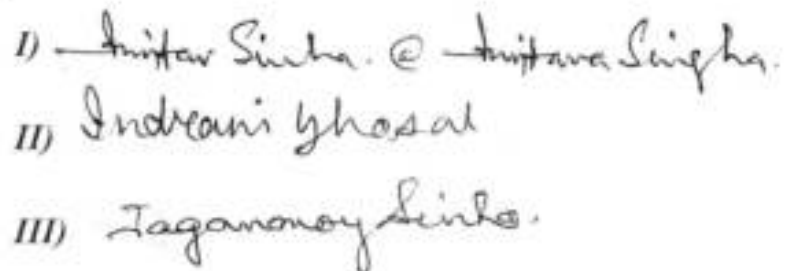 I) Amitav Sinha. @ Amitava Singha.
II) Indreani Ghosal
III) Jaganmoy Sinha.